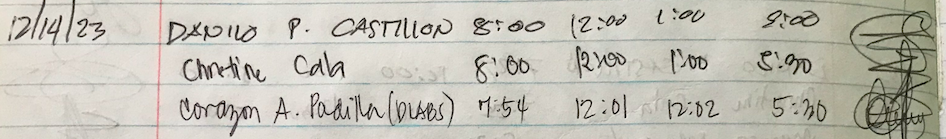 12/14/23 DANILO P. CASTILLON 8:00 12:00 1:00 9:00
Christine Cala 8:00 12:00 1:00 5:30
Corazon A. Padilla (DLABS) 7:54 12:01 12:02 5:30